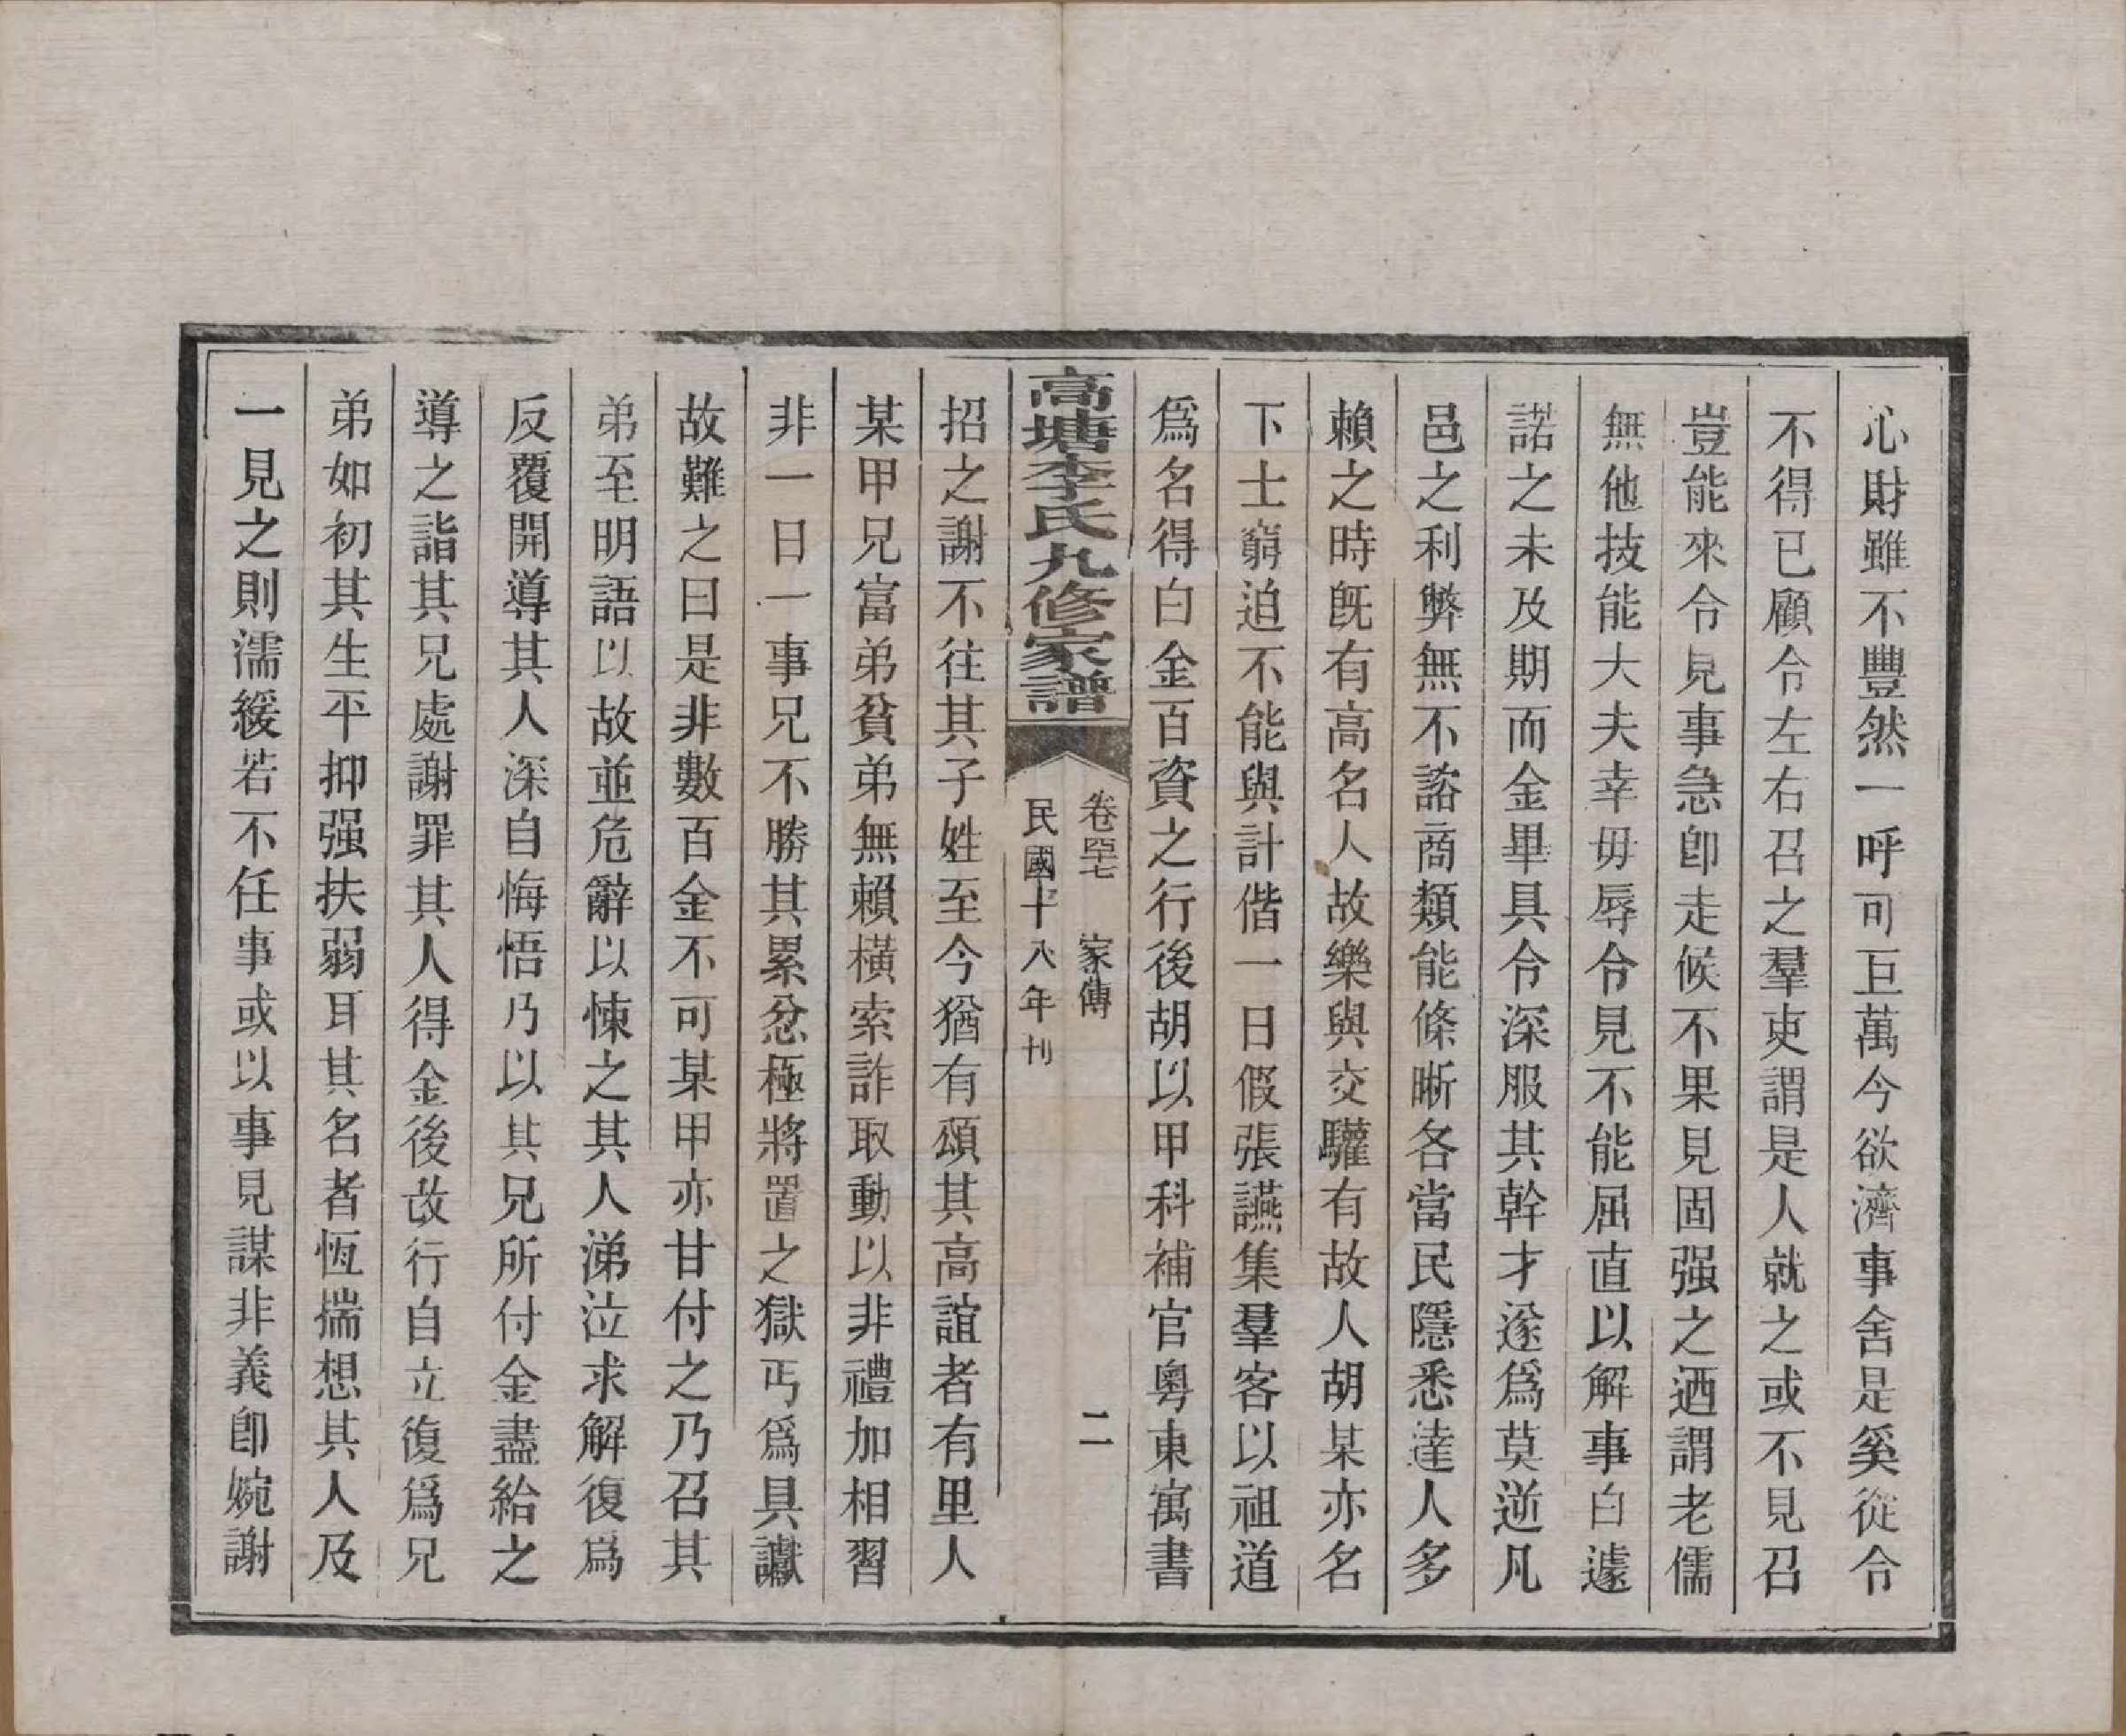 心財雖不豐然一呼可巨萬今欲濟事舍是奚從令
不得已顧令左右召之羣吏謂是人就之或不見召
豈能來令見事急卽走候不果見固强之迺謂老儒
無他技能大夫幸毋辱令見不能屈直以解事白遽
諾之未及期而金畢具令深服其幹才遂爲莫逆凡
邑之利弊無不諮商類能條晰各當民隱悉達人多
賴之時旣有高名人故樂與交驩有故人胡某亦名
下士窮迫不能與計偕一日假張讌集羣客以祖道
爲名得白金百資之行後胡以甲科補官粵東寓書
高塘李氏九修家譜
卷四十七 家傳 二
民國十八年刊
招之謝不往其子姓至今猶有頌其高誼者有里人
某甲兄富弟貧弟無賴橫索詐取動以非禮加相習
非一日一事兄不勝其累忿極將置之獄丐爲具讞
故難之曰是非數百金不可某甲亦甘付之乃召其
弟至明語以故並危辭以悚之其人涕泣求解復爲
反覆開導其人深自悔悟乃以其兄所付金盡給之
導之詣其兄處謝罪其人得金後改行自立復爲兄
弟如初其生平抑强扶弱耳其名者恆揣想其人及
一見之則濡緩若不任事或以事見謀非義卽婉謝